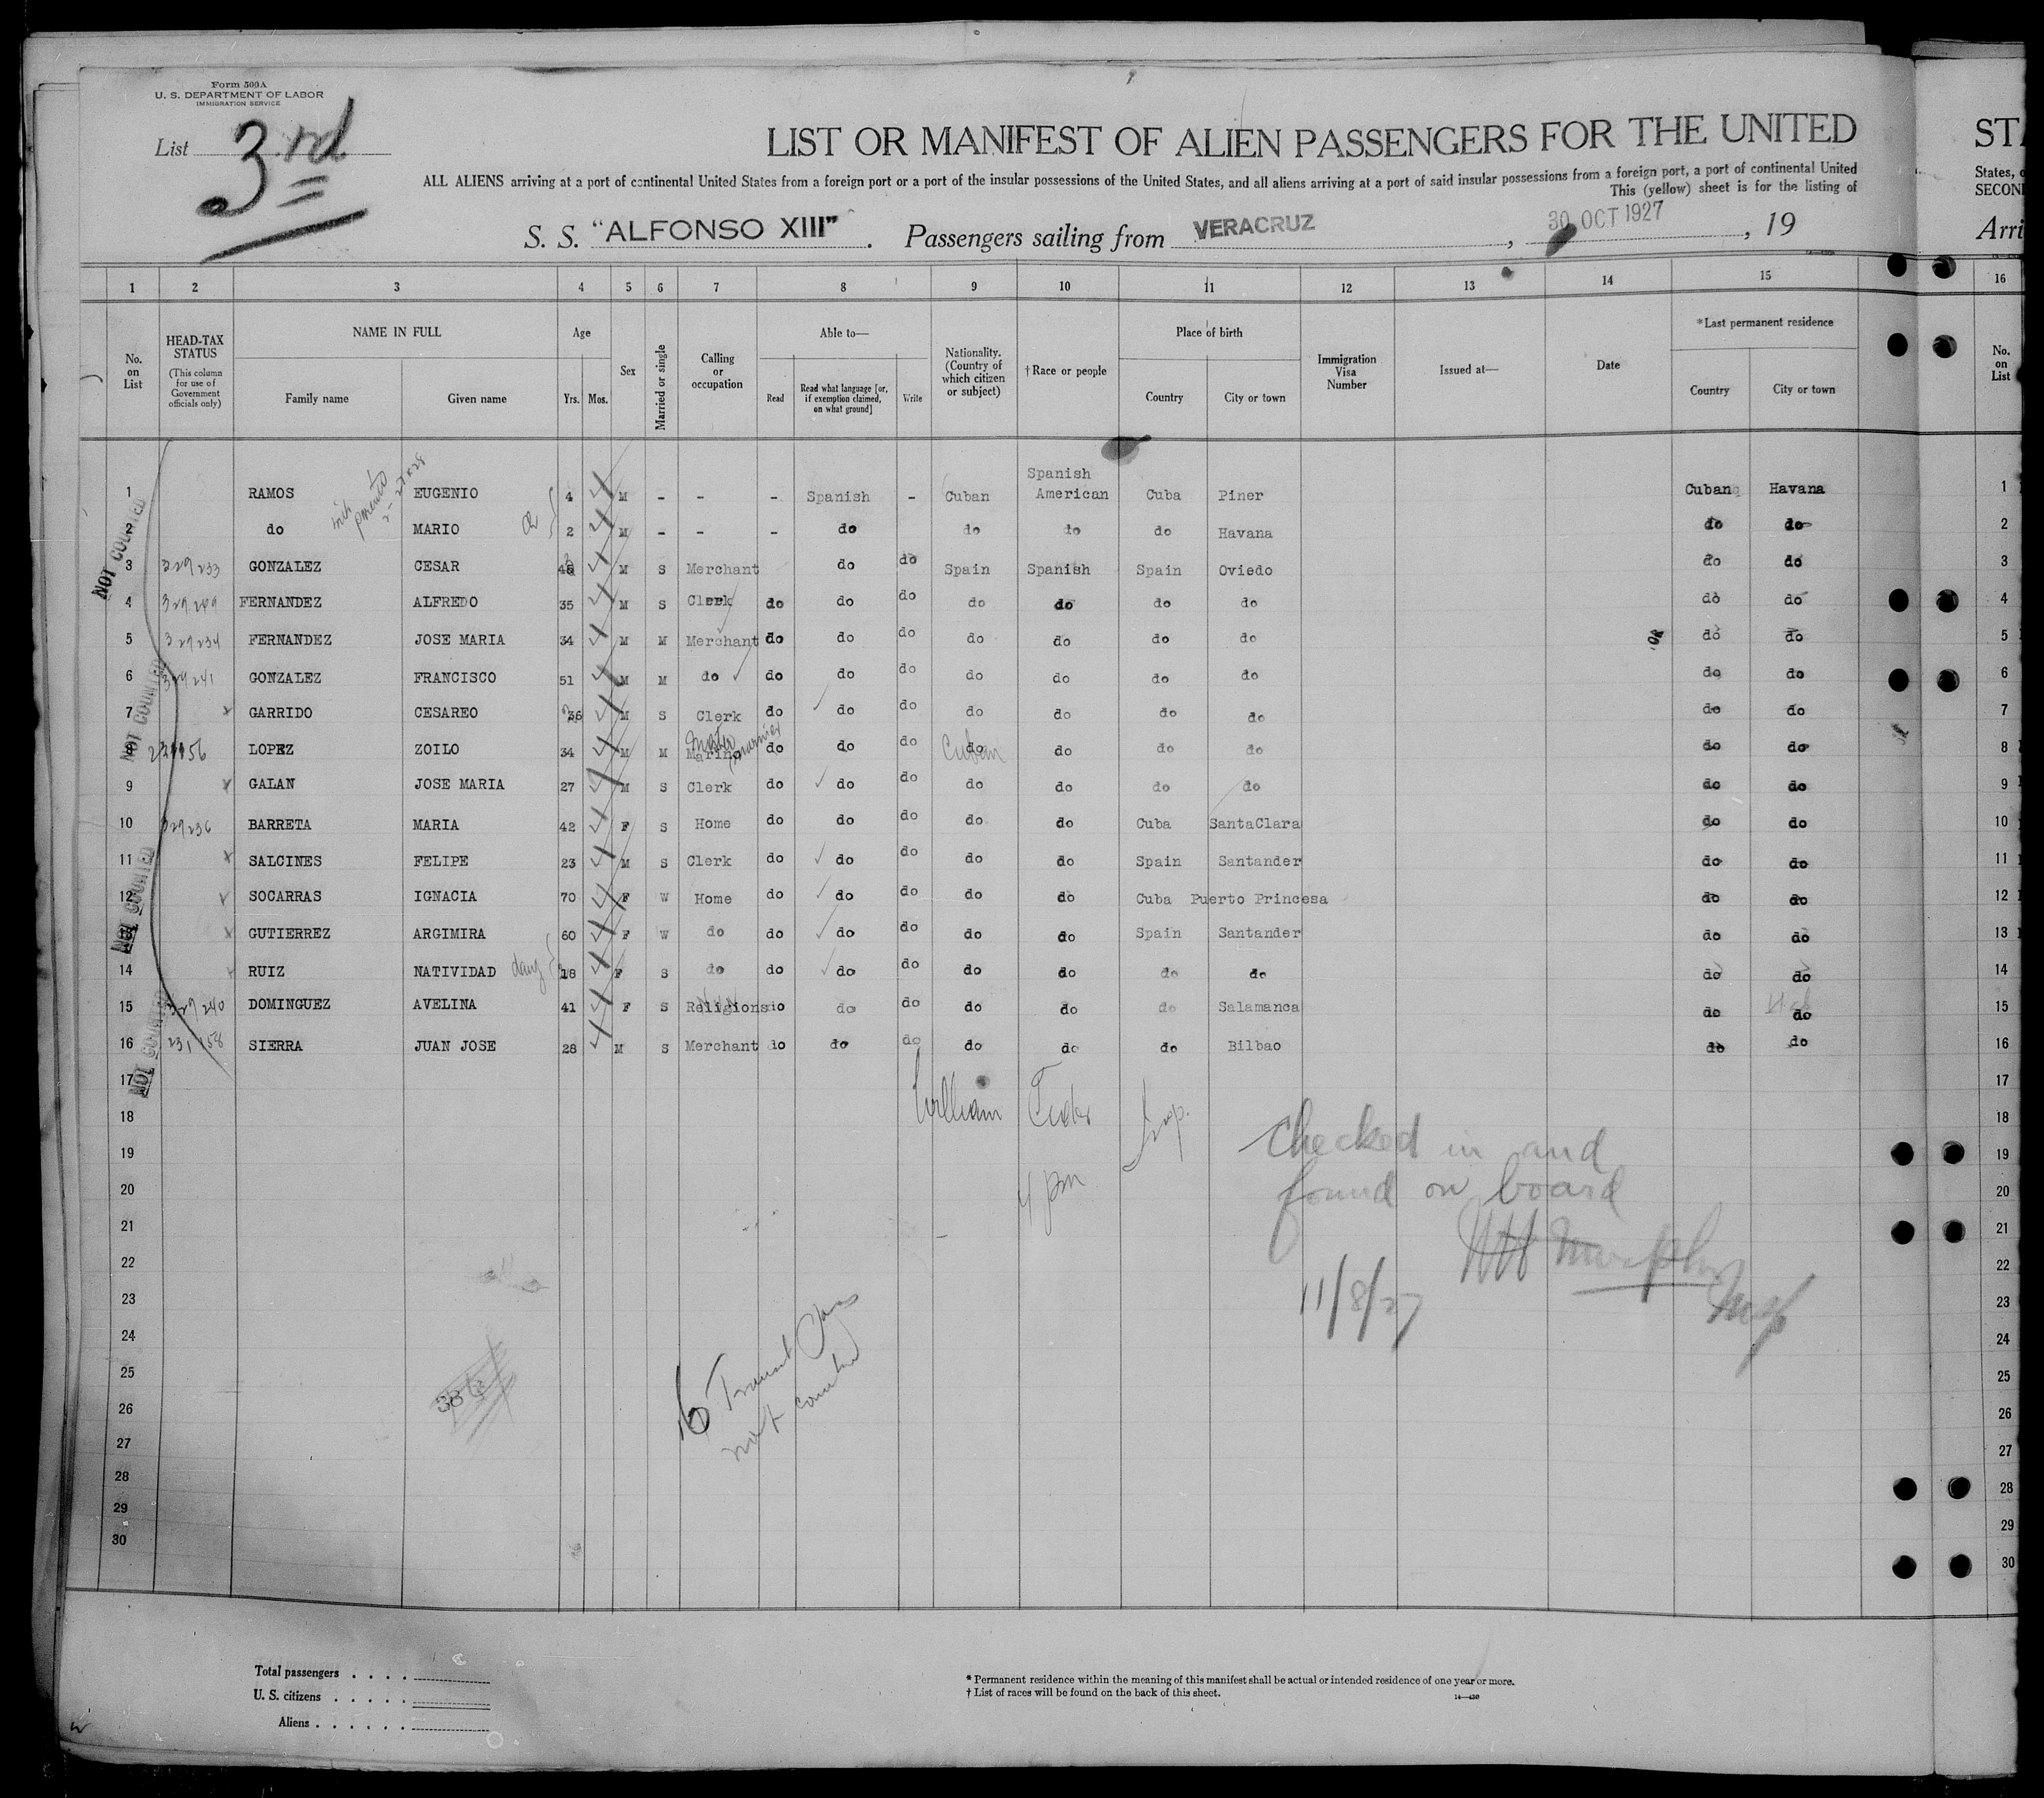 Form 500A
U. S. DEPARTMENT OF LABOR
IMMIGRATION SERVICE
List 3rd
LIST OR MANIFEST OF ALIEN PASSENGERS FOR THE UNITED
ALL ALIENS arriving at a port of continental United States from a foreign port or a port of the insular possessions of the United States, and all aliens arriving at a port of said insular possessions from a foreign port, a port of continental United
This (yellow) sheet is for the listing of
S. S. "ALFONSO XIII". Passengers sailing from VERACRUZ, 30 OCT 1927, 19
STA
States, o
SECOND
Arri
1 2 3 4 5 6 7 8 9 10 11 12 13 14 15 16
No. on List
HEAD-TAX STATUS
(This column for use of Government officials only)
NAME IN FULL
Family name Given name
Age
Yrs. Mos.
Sex
Married or single
Calling or occupation
Able to—
Read
Read what language [or, if exemption claimed, on what ground]
Write
Nationality. (Country of which citizen or subject)
† Race or people
Place of birth
Country City or town
Immigration Visa Number
Issued at—
Date
*Last permanent residence
Country City or town
No. on List
1 RAMOS EUGENIO 4 M - - - Spanish - Cuban Spanish American Cuba Piner Cuban Havana 1
2 do MARIO 2 M - - - do do do do Havana do do 2
3 329233 GONZALEZ CESAR M S Merchant do do Spain Spanish Spain Oviedo do do 3
4 329249 FERNANDEZ ALFREDO 35 M S Clerk do do do do do do do do do 4
5 329234 FERNANDEZ JOSE MARIA 34 M M Merchant do do do do do do do do do 5
6 329241 GONZALEZ FRANCISCO 51 M M do do do do do do do do do do 6
7 GARRIDO CESAREO 36 M S Clerk do do do do do do do do do 7
8 LOPEZ ZOILO 34 M M Marine do do do do Cuban do do do do do 8
9 GALAN JOSE MARIA 27 M S Clerk do do do do do do do do do 9
10 329236 BARRETA MARIA 42 F S Home do do do do do Cuba SantaClara do do 10
11 SALCINES FELIPE 23 M S Clerk do do do do do Spain Santander do do 11
12 SOCARRAS IGNACIA 70 F W Home do do do do do Cuba Puerto Princesa do do 12
13 GUTIERREZ ARGIMIRA 60 F W do do do do do do Spain Santander do do 13
14 RUIZ NATIVIDAD daug 18 F S do do do do do do do do do do 14
15 329240 DOMINGUEZ AVELINA 41 F S Religions do do do do do do Salamanca do do 15
16 231158 SIERRA JUAN JOSE 28 M S Merchant do do do do do do Bilbao do do 16
NOT COUNTED
NOT COUNTED
NOT COUNTED
NOT COUNTED
17 17
18 William Insp. 18
19 Checked in and 19
20 4 pm found on board 20
21 Murphy 21
22 22
23 11/8/27 Insp 23
24 24
25 25
26 16 Transit not counted 26
27 27
28 28
29 29
30 30
Total passengers . . . .
U. S. citizens . . . . .
Aliens . . . . . .
* Permanent residence within the meaning of this manifest shall be actual or intended residence of one year or more.
† List of races will be found on the back of this sheet.